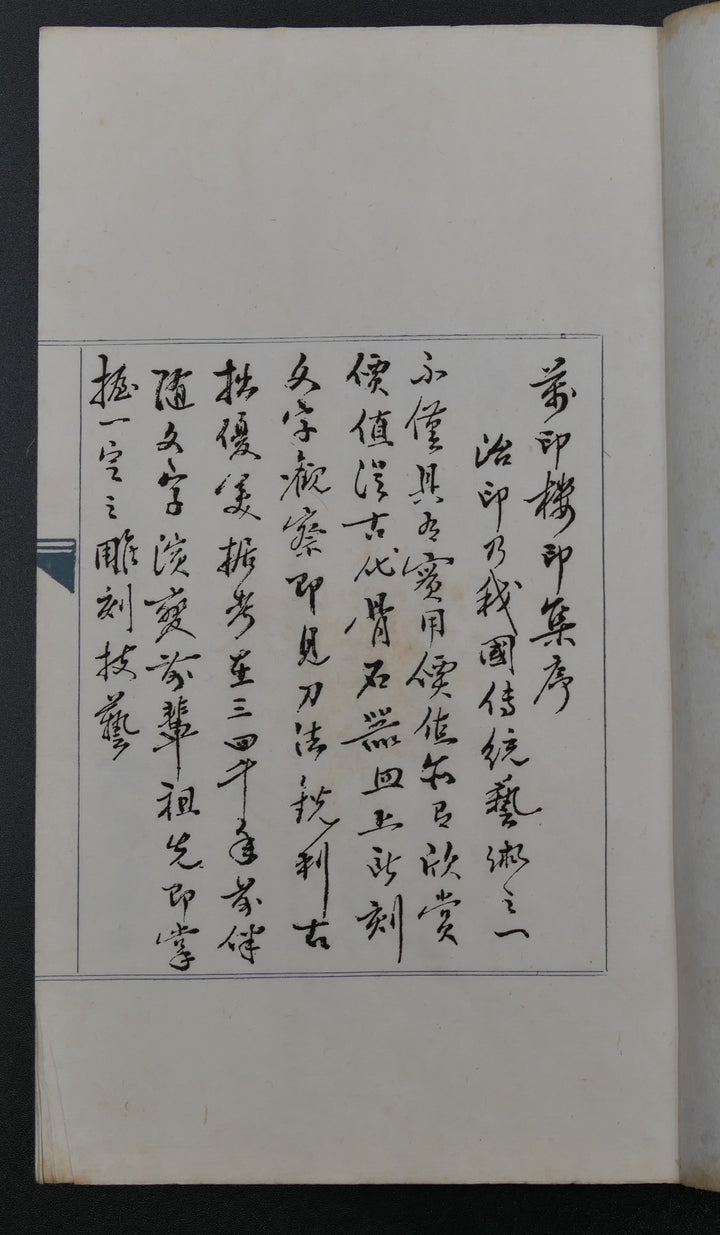 萬印樓印集序
治印乃我國傳統藝術之一
不僅具有實用價值亦有欣賞
價值從古代骨石器皿上所刻
文字觀察即見刀法銳利古
拙優美据考在三四千年前伴
隨文字演變前輩祖先即掌
握一定之雕刻技藝